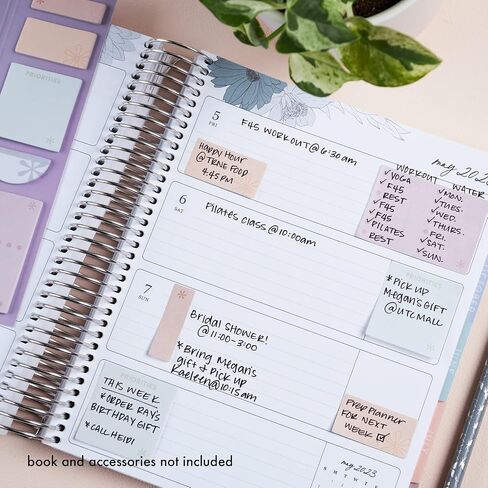 PRIORITIES
may 2023
5
FRI
F45 WORKOUT @ 6:30am
Happy Hour
@ TRUE FOOD
4:45 PM
WORKOUT WATER
✓YOGA ✓MON.
✓F45 ✓TUES.
REST ✓WED.
✓F45 ✓THURS.
✓F45 FRI.
✓PILATES ✓SAT.
REST ✓SUN.
6
SAT
PILATES CLASS @ 10:00am
*PICK UP
Megan's GIFT
@ UTC MALL
7
SUN
Bridal SHOWER!
@ 11:00-3:00
*Bring Megan's
gift & Pick up
Kaeleen @ 10:15am
PRIORITIES
THIS WEEK
*ORDER RAY'S
BIRTHDAY GIFT
*CALL HEIDI
Prep Planner
FOR NEXT
WEEK ☑
may 2023
S M T W T F S
book and accessories not included